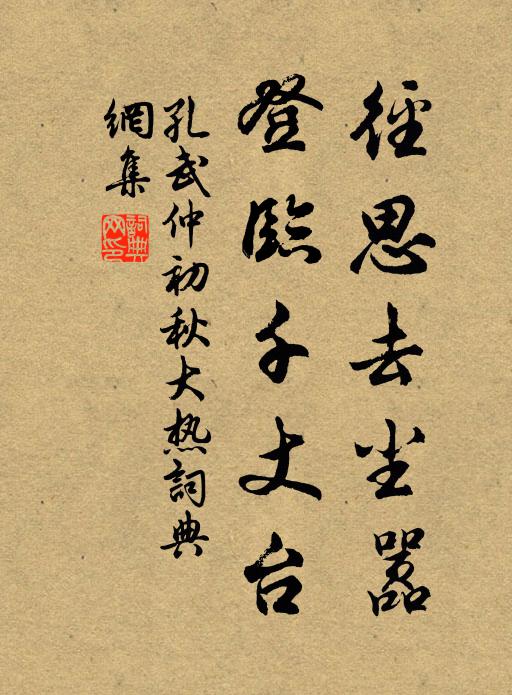 徑思去尘嚣
登臨千丈台
孔武仲初秋大热詞典
網集
詞典網印